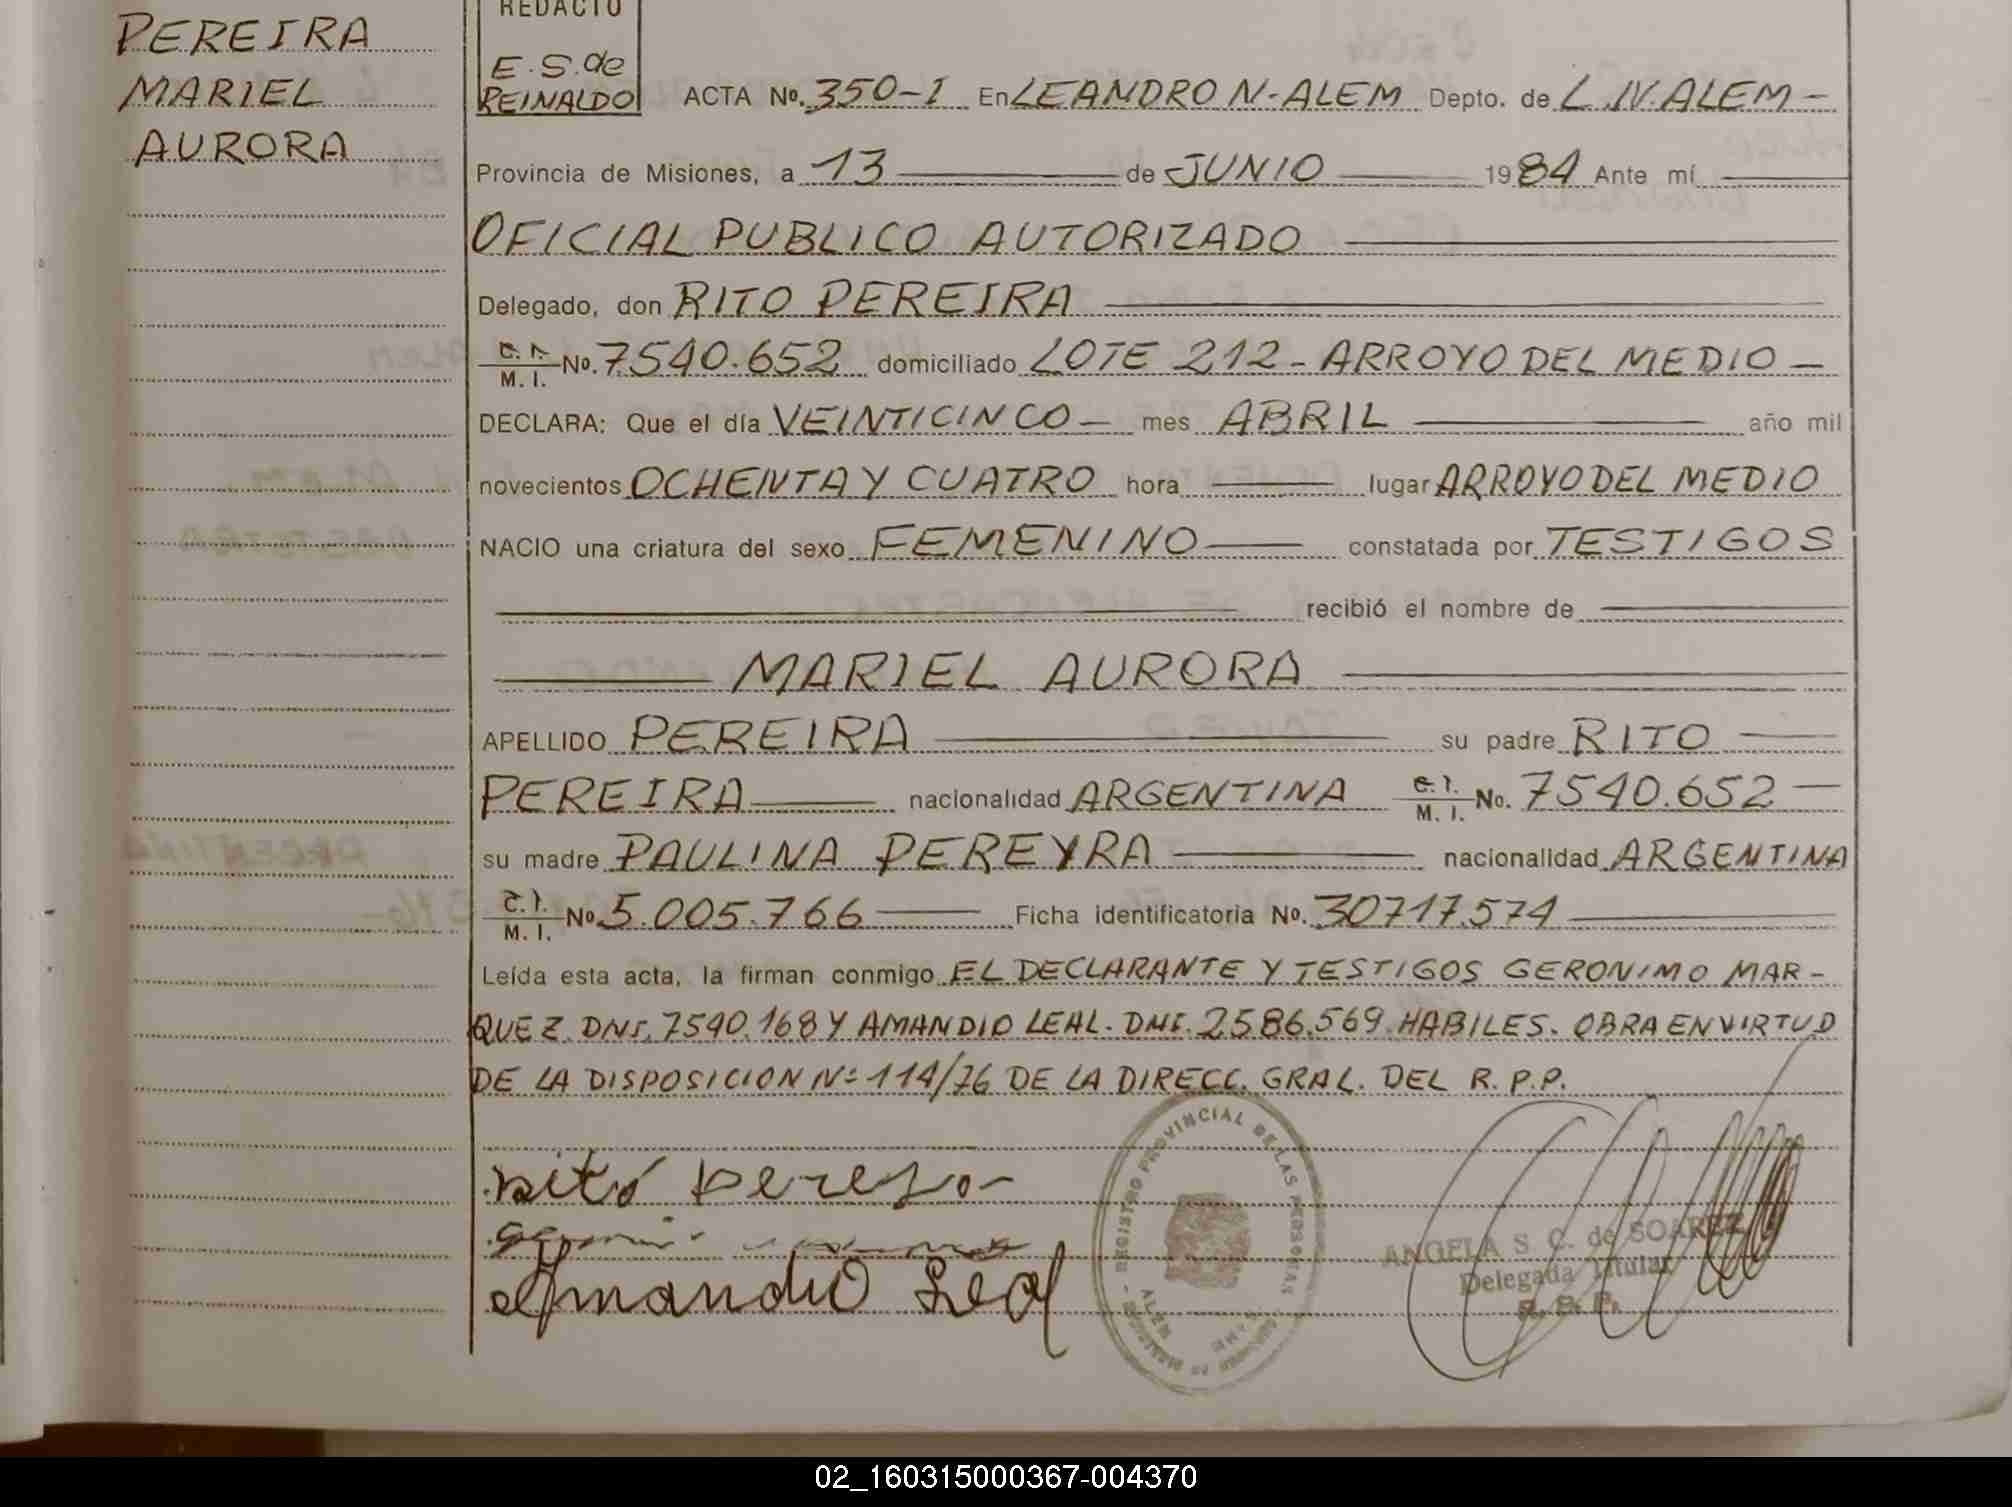 PEREIRA
MARIEL
AURORA
REDACTO
E. S. de
REINALDO
ACTA No. 350-I En LEANDRO N. ALEM Depto. de L. N. ALEM -
Provincia de Misiones, a 13 de JUNIO 1984 Ante mí
OFICIAL PUBLICO AUTORIZADO
Delegado, don RITO PEREIRA
C. I.
M. I. No. 7540.652 domiciliado LOTE 212 - ARROYO DEL MEDIO -
DECLARA: Que el día VEINTICINCO - mes ABRIL año mil
novecientos OCHENTA Y CUATRO hora lugar ARROYO DEL MEDIO
NACIO una criatura del sexo FEMENINO constatada por TESTIGOS
recibió el nombre de
MARIEL AURORA
APELLIDO PEREIRA su padre RITO
PEREIRA nacionalidad ARGENTINA C. I.
M. I. No. 7540.652
su madre PAULINA PEREYRA nacionalidad ARGENTINA
C. I.
M. I. No. 5.005.766 Ficha identificatoria No. 30717.574
Leída esta acta, la firman conmigo EL DECLARANTE Y TESTIGOS GERONIMO MAR-
QUEZ. DNI. 7540.168 Y AMANDIO LEAL. DNI. 2586.569. HABILES. OBRA EN VIRTUD
DE LA DISPOSICION Nº 114/76 DE LA DIRECC. GRAL. DEL R. P. P.
REGISTRO PROVINCIAL DE LAS PERSONAS
ALEM
Amandio Leal
ANGELA S. C. de SOAREZ
Delegada Titular
R. P. P.
02_160315000367-004370